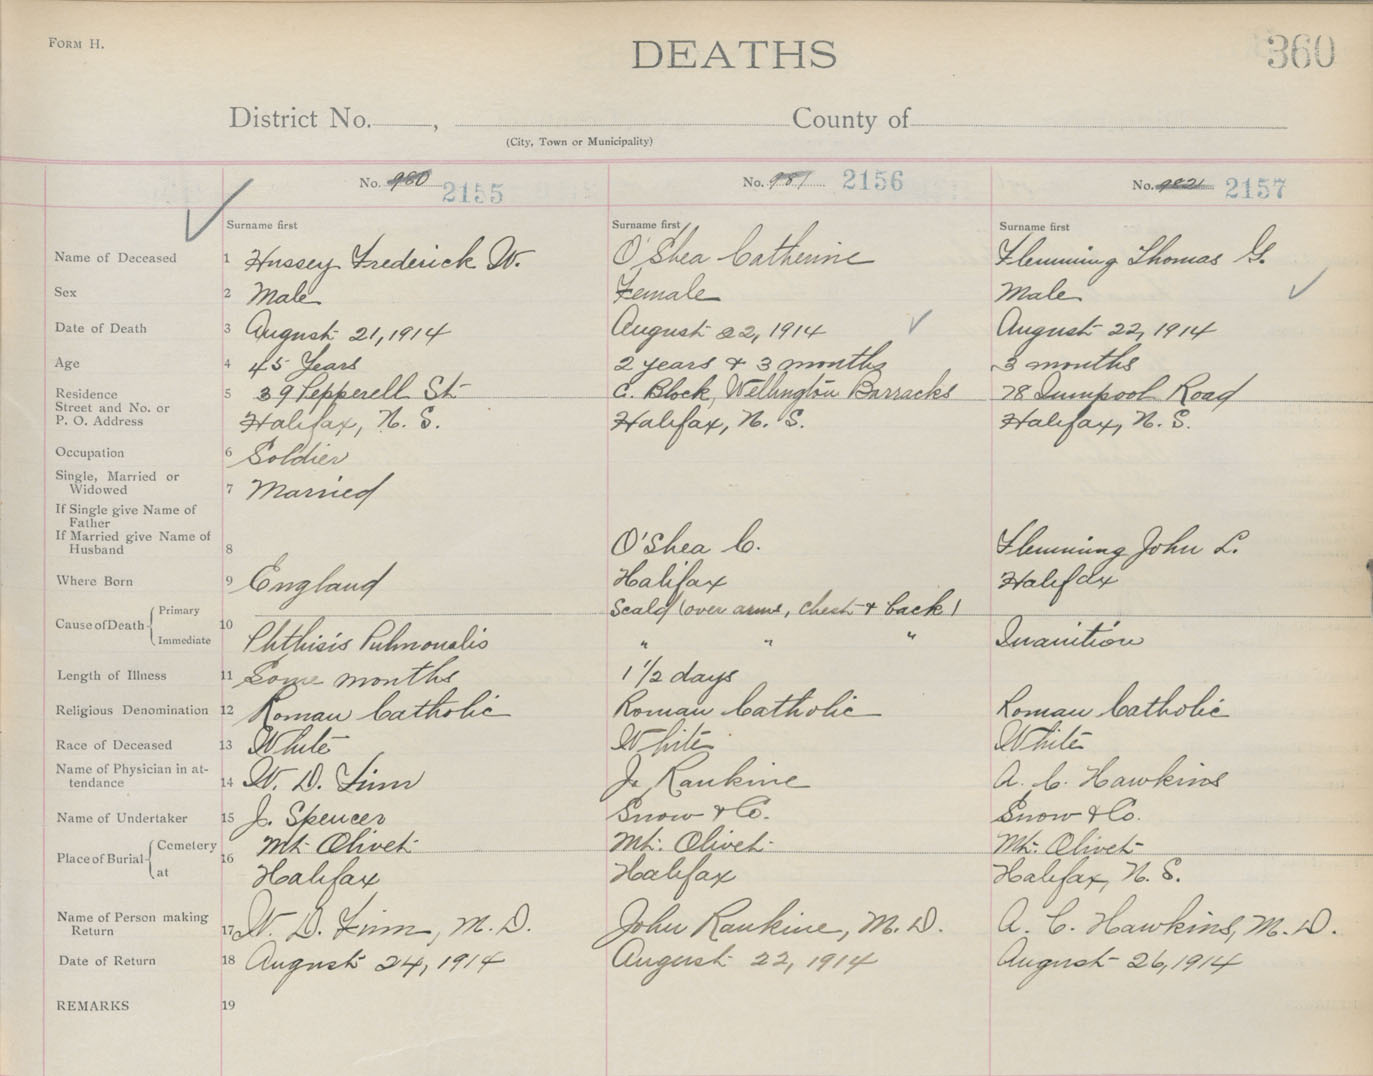 FORM H.
DEATHS
360
District No. , County of
(City, Town or Municipality)
No. 980 2155 No. 981 2156 No. 982 2157
Surname first Surname first Surname first
Name of Deceased 1 Hussey Frederick W. O'Shea Catherine Flemming Thomas G.
Sex 2 Male Female Male
Date of Death 3 August 21, 1914 August 22, 1914 August 22, 1914
Age 4 45 Years 2 years & 3 months 3 months
Residence 5 39 Pepperell St. C. Block, Wellington Barracks 78 Road
Street and No. or
P. O. Address Halifax, N. S. Halifax, N. S. Halifax, N. S.
Occupation 6 Soldier
Single, Married or
Widowed 7 Married
If Single give Name of
Father
If Married give Name of
Husband 8 O'Shea C. Flemming John L.
Where Born 9 England Halifax Halifax
Cause of Death 10 Primary Scald (over arms, chest & back)
Immediate Phthisis Pulmonalis " " " Inanition
Length of Illness 11 Some months 1 1/2 days
Religious Denomination 12 Roman Catholic Roman Catholic Roman Catholic
Race of Deceased 13 White White White
Name of Physician in at-
tendance 14 W. D. Finn J. Rankine A. C. Hawkins
Name of Undertaker 15 J. Spencer Snow & Co. Snow & Co.
Place of Burial 16 Cemetery Mt. Olivet Mt. Olivet Mt. Olivet
at Halifax Halifax Halifax, N. S.
Name of Person making
Return 17 W. D. Finn, M. D. John Rankine, M. D. A. C. Hawkins, M. D.
Date of Return 18 August 24, 1914 August 22, 1914 August 26, 1914
REMARKS 19